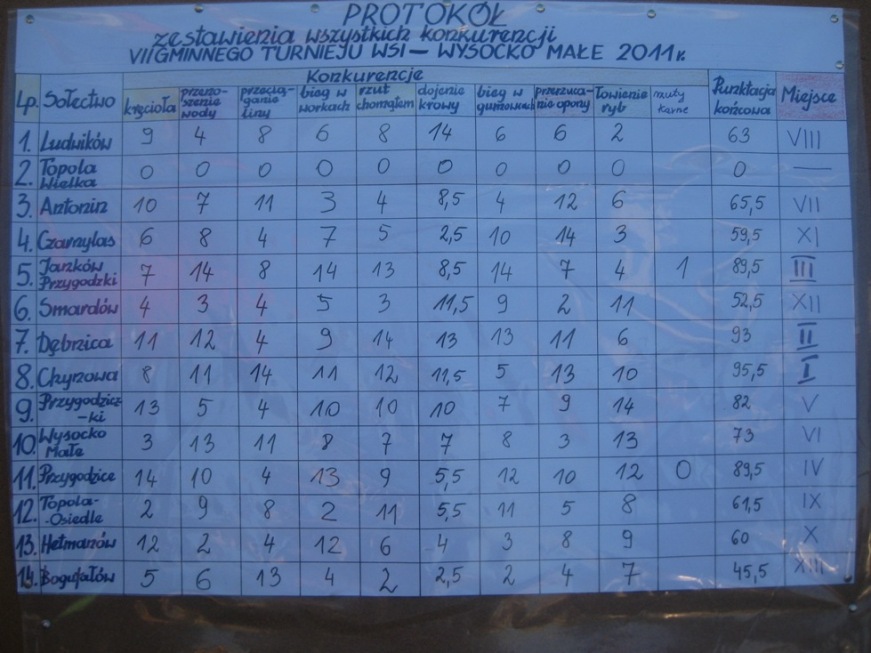 PROTOKÓŁ
zestawienia wszystkich konkurencji
VII GMINNEGO TURNIEJU WSI — WYSOCKO MAŁE 2011 r.
Konkurencje
Lp. Sołectwo kręcioła przeno-szenie wody przecią-ganie liny bieg w workach rzut chomątem dojenie krowy bieg w gumowcach przerzuca-nie opony łowienie ryb Punktacja końcowa Miejsce
1. Ludwików 9 4 8 6 8 14 6 6 2 63 VIII
2. Topola Wielka 0 0 0 0 0 0 0 0 0 0 —
3. Antonin 10 7 11 3 4 8,5 4 12 6 65,5 VII
4. Czarnylas 6 8 4 7 5 2,5 10 14 3 59,5 XI
5. Janków Przygodzki 7 14 8 14 13 8,5 14 7 4 1 89,5 III
6. Smardów 4 3 4 5 3 11,5 9 2 11 52,5 XII
7. Dębnica 11 12 4 9 14 13 13 11 6 93 II
8. Chynowa 8 11 14 11 12 11,5 5 13 10 95,5 I
9. Przygodzicz-ki 13 5 4 10 10 10 7 9 14 82 V
10. Wysocko Małe 3 13 11 8 7 7 8 3 13 73 VI
11. Przygodzice 14 10 4 13 9 5,5 12 10 12 0 89,5 IV
12. Topola-Osiedle 2 9 8 2 11 5,5 11 5 8 61,5 IX
13. Hetmanów 12 2 4 12 6 4 3 8 9 60 X
14. Bogufałów 5 6 13 4 2 2,5 2 4 7 45,5 XIII